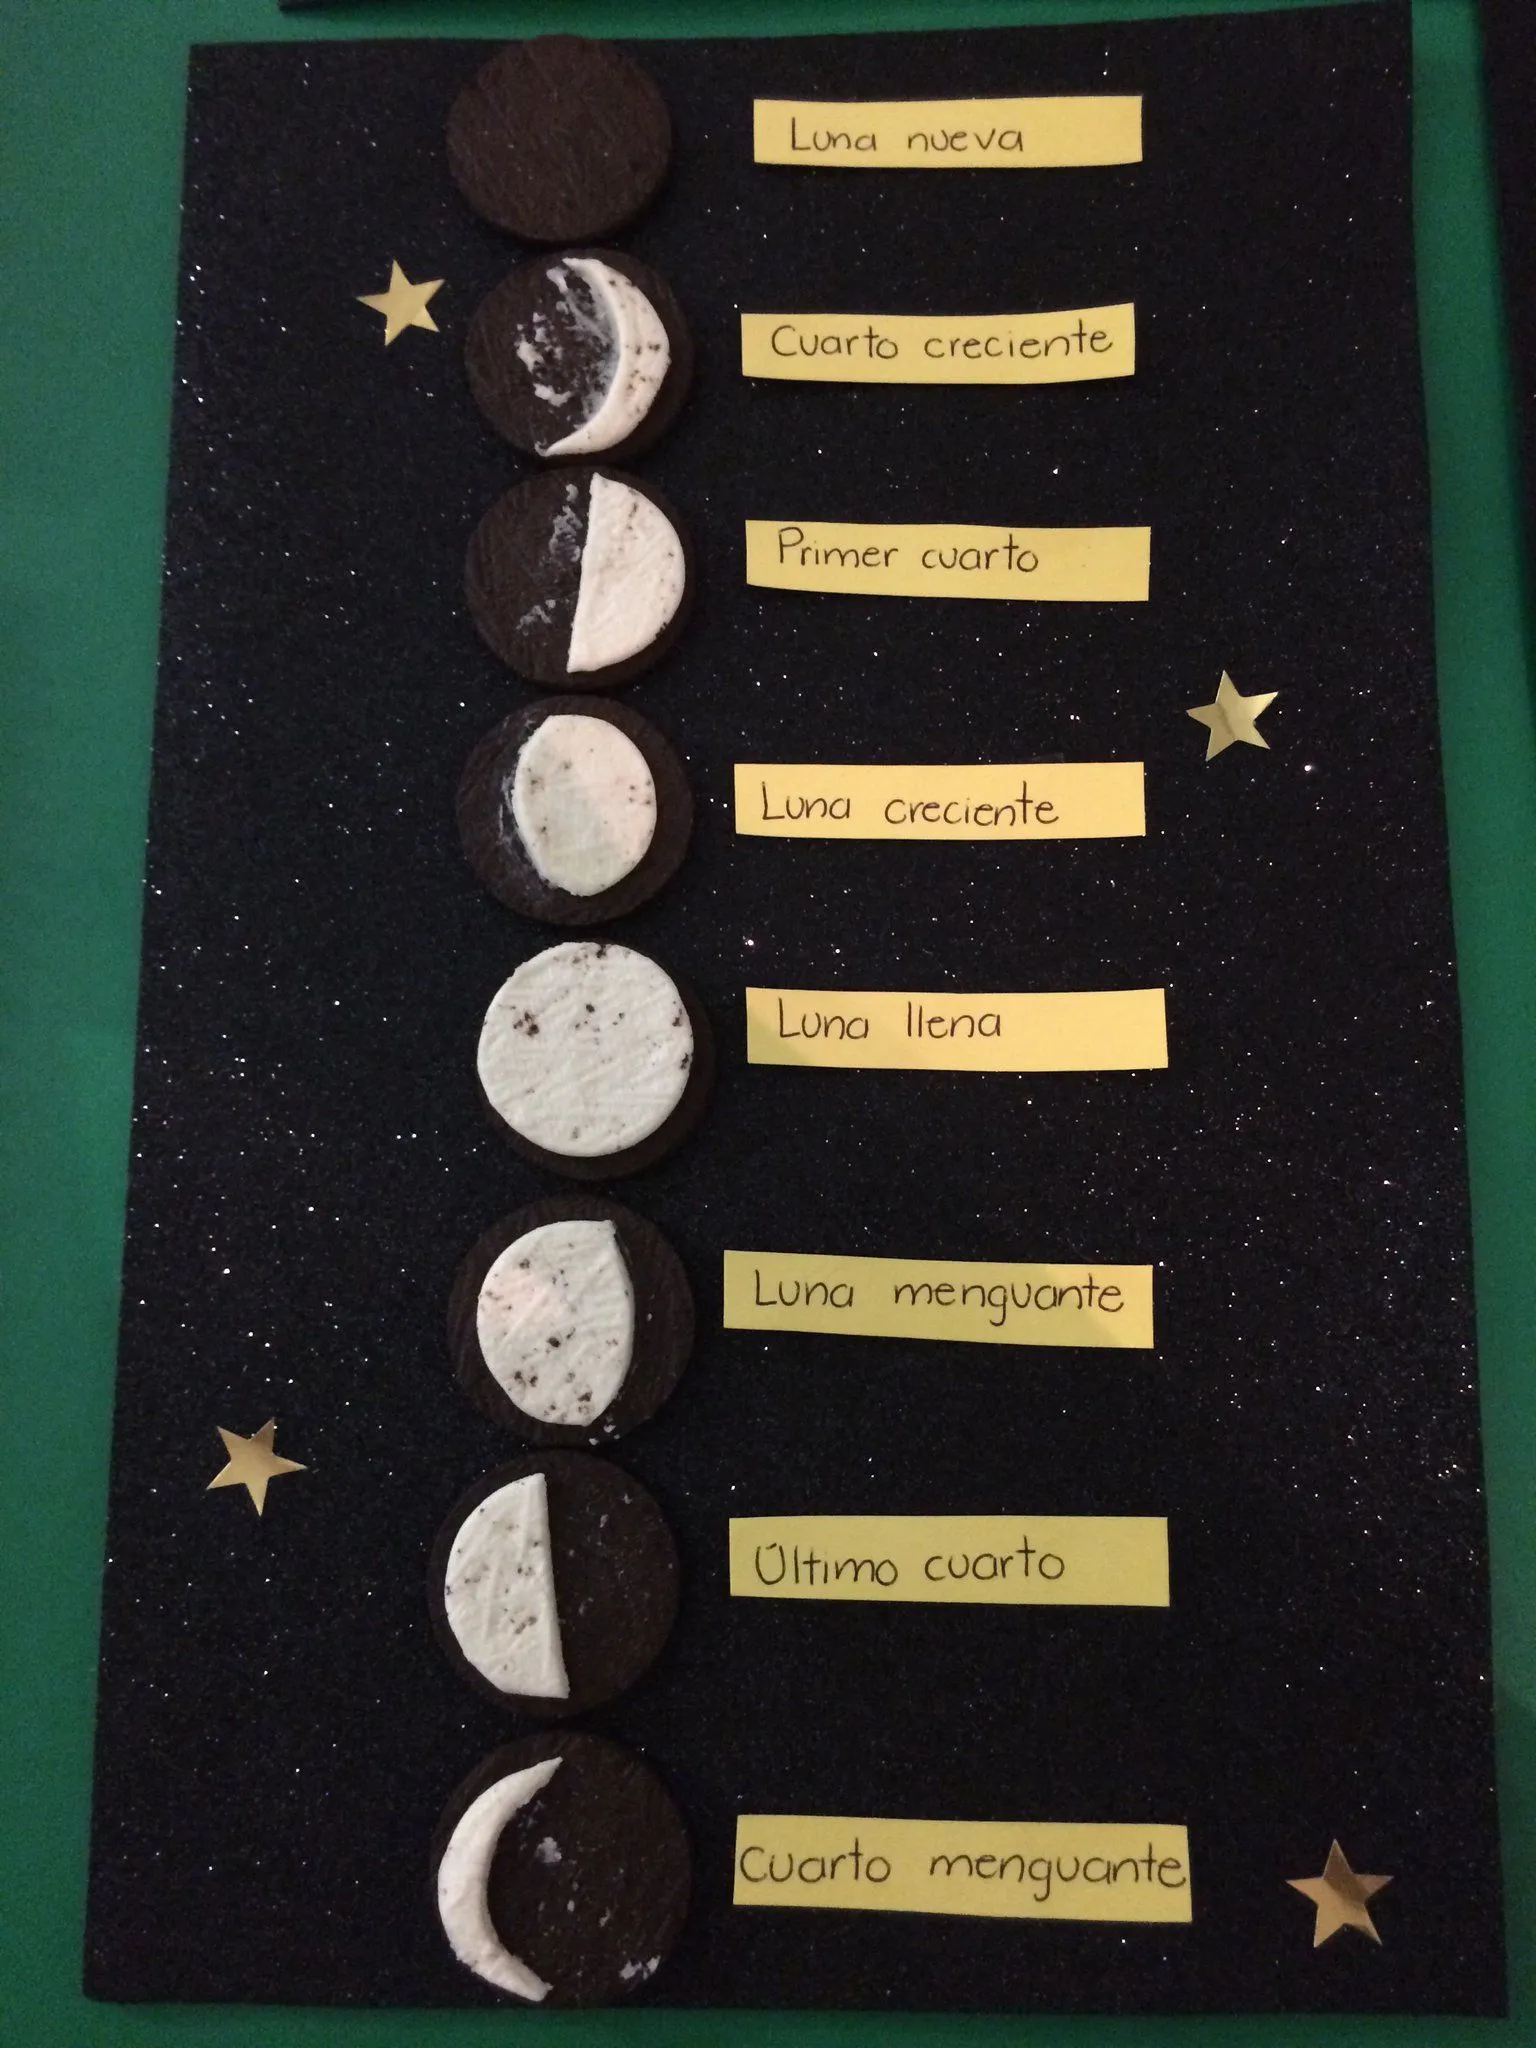 Luna nueva
Cuarto creciente
Primer cuarto
Luna creciente
Luna llena
Luna menguante
Último cuarto
Cuarto menguante